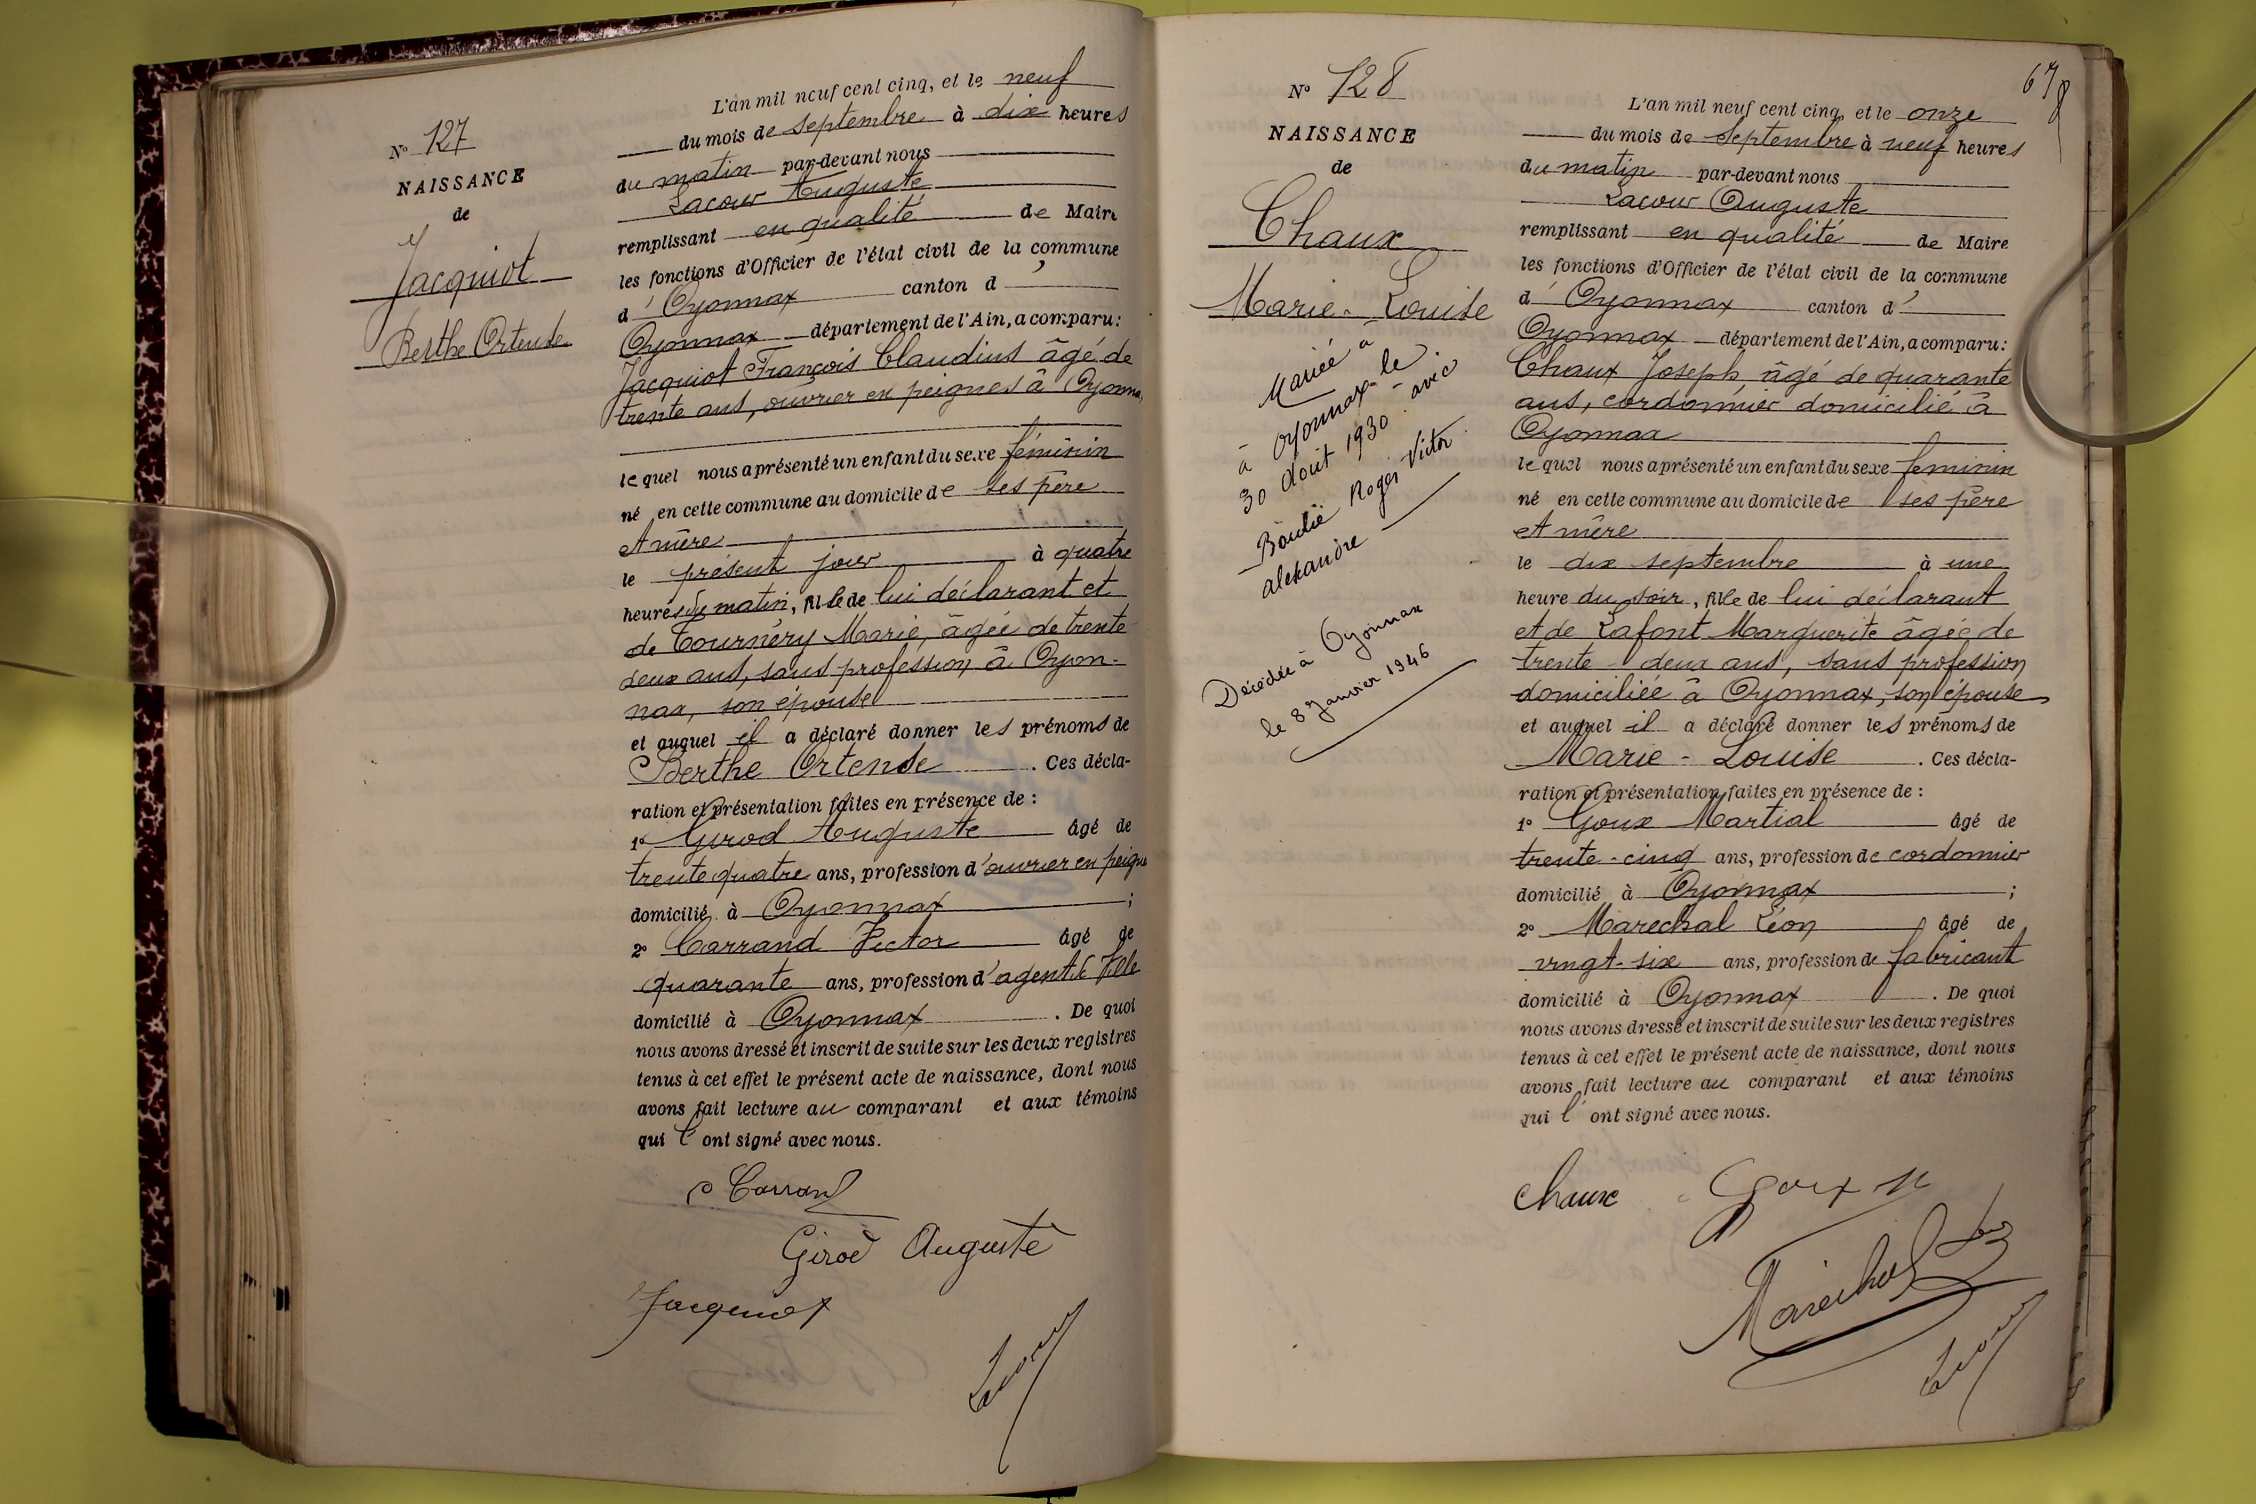 N° 127
NAISSANCE
de
Jacquiot
Berthe Ortense
L'an mil neuf cent cinq, et le neuf
du mois de septembre à dix heures
du matin par-devant nous
Lacour Auguste
remplissant en qualité de Maire
les fonctions d'Officier de l'état civil de la commune
d'Oyonnax canton d'
Oyonnax département de l'Ain, a comparu:
Jacquiot François Claudius âgé de
trente ans, ouvrier en peignes à Oyonnax
lequel nous a présenté un enfant du sexe féminin
né en cette commune au domicile de ses père
et mère
le présent jour à quatre
heures du matin, fille de lui déclarant et
de Tournéry Marie, âgée de trente
deux ans, sans profession, à Oyon-
nax, son épouse
et auquel il a déclaré donner les prénoms de
Berthe Ortense. Ces décla-
ration et présentation faites en présence de :
1° Girod Auguste âgé de
trente quatre ans, profession d'ouvrier en peigne
domicilié à Oyonnax ;
2° Carrand Victor âgé de
quarante ans, profession d'agent de Ville
domicilié à Oyonnax. De quoi
nous avons dressé et inscrit de suite sur les deux registres
tenus à cet effet le présent acte de naissance, dont nous
avons fait lecture au comparant et aux témoins
qui l'ont signé avec nous.
Carrand
Girod Auguste
Jacquiot
Lacour
678
N° 128
NAISSANCE
de
Chaux
Marie-Louise
Mariée à
à Oyonnax le
30 Août 1930 avec
Boudié Roger Victor
Alexandre
Décédée à Oyonnax
le 8 Janvier 1946
L'an mil neuf cent cinq, et le onze
du mois de Septembre à neuf heures
du matin par-devant nous
Lacour Auguste
remplissant en qualité de Maire
les fonctions d'Officier de l'état civil de la commune
d'Oyonnax canton d'
Oyonnax département de l'Ain, a comparu:
Chaux Joseph, âgé de quarante
ans, cordonnier domicilié à
Oyonnax
lequel nous a présenté un enfant du sexe feminin
né en cette commune au domicile de ses père
et mère
le dix septembre à une
heure du soir, fille de lui déclarant
et de Lafont Marguerite âgée de
trente-deux ans, sans profession
domiciliée à Oyonnax, son épouse
et auquel il a déclaré donner les prénoms de
Marie-Louise. Ces décla-
ration et présentation faites en présence de :
1° Goux Martial âgé de
trente-cinq ans, profession de cordonnier
domicilié à Oyonnax ;
2° Marechal Léon âgé de
vingt-six ans, profession de fabricant
domicilié à Oyonnax. De quoi
nous avons dressé et inscrit de suite sur les deux registres
tenus à cet effet le présent acte de naissance, dont nous
avons fait lecture au comparant et aux témoins
qui l'ont signé avec nous.
Chaux Goux M
Marechal
Lacour